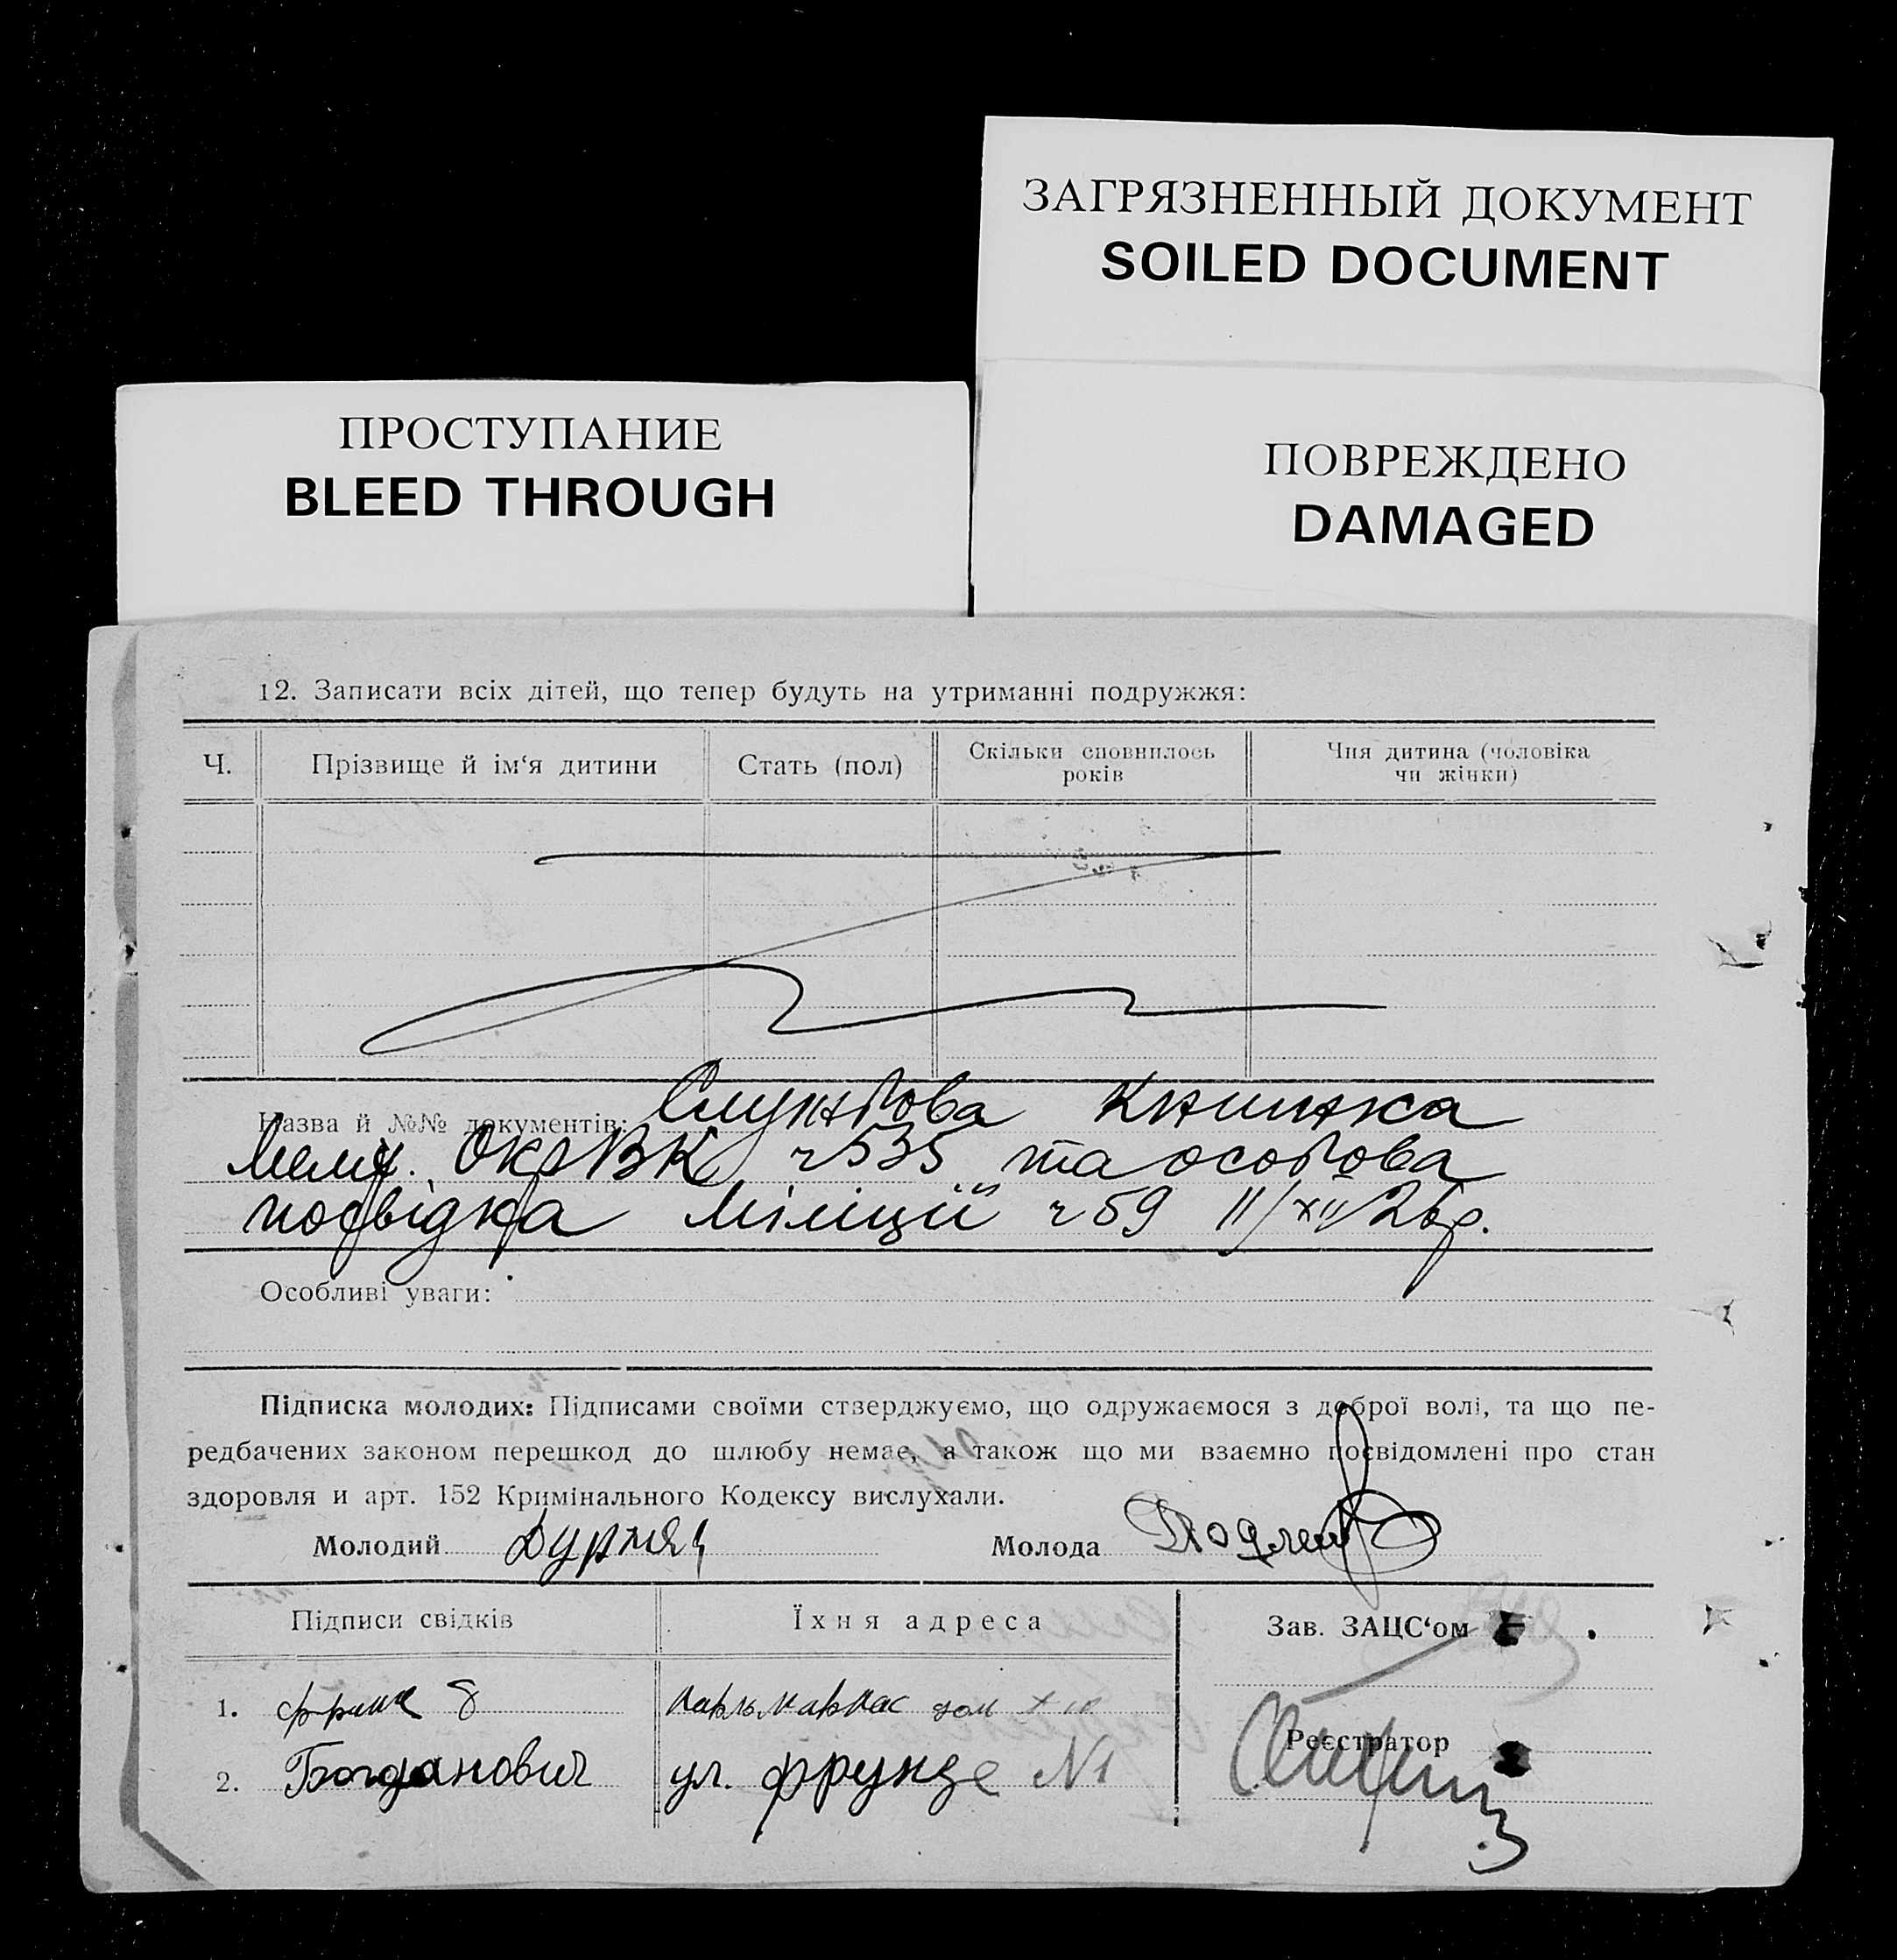 ЗАГРЯЗНЕННЫЙ ДОКУМЕНТ
SOILED DOCUMENT
ПРОСТУПАНИЕ
BLEED THROUGH
ПОВРЕЖДЕНО
DAMAGED
12. Записати всіх дітей, що тепер будуть на утриманні подружжя:
Ч. Прізвище й ім‘я дитини Стать (пол) Скільки сповнилось років Чия дитина (чоловіка чи жінки)
Назва й №№ документів: Службова Книжка
ОкрВК ч 535 та особова
посвідка Міліції ч 59 11/XII 26р.
Особливі уваги:
Підписка молодих: Підписами своїми стверджуємо, що одружаємося з доброї волі, та що пе-
редбачених законом перешкод до шлюбу немає, а також що ми взаємно посвідомлені про стан
здоровля и арт. 152 Кримінального Кодексу вислухали.
Молодий Молода
Підписи свідків Їхня адреса Зав. ЗАЦС‘ом
1. дом
Реєстратор
2. Богданович ул. Фрунзе №1